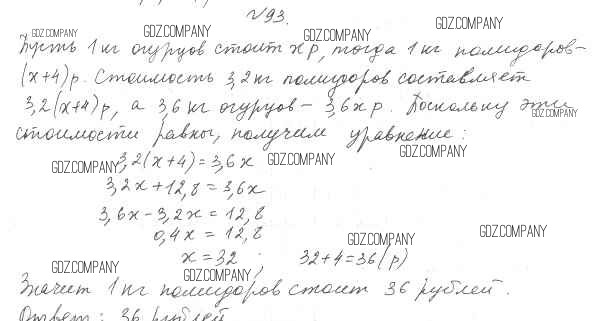 №93.
Пусть 1 кг огурцов стоит x р, тогда 1 кг помидоров-
(x+4) р. Стоимость 3,2 кг помидоров составляет
3,2(x+4) р, а 3,6 кг огурцов - 3,6x р. Поскольку эти
стоимости равны, получим уравнение:
3,2(x+4)=3,6x
3,2x+12,8=3,6x
3,6x-3,2x=12,8
0,4x=12,8
x=32; 32+4=36(р)
Значит 1 кг помидоров стоит 36 рублей.
Ответ: 36 рублей
GDZ.COMPANY
GDZ.COMPANY
GDZ.COMPANY
GDZ.COMPANY
GDZ.COMPANY
GDZ.COMPANY
GDZ.COMPANY
GDZ.COMPANY
GDZ.COMPANY
GDZ.COMPANY
GDZ.COMPANY
GDZ.COMPANY